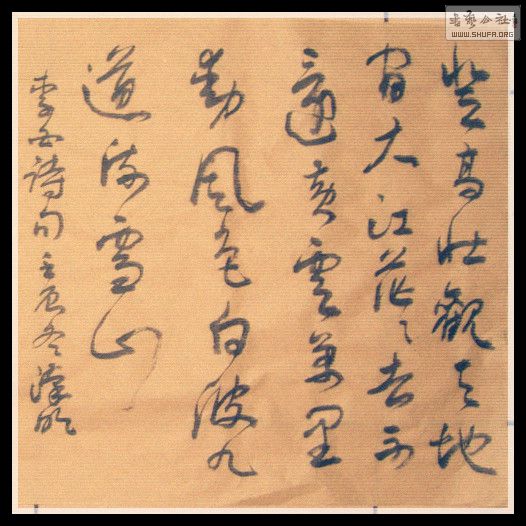 登高壯觀天地
間大江茫〻去不
還黃雲萬里
動風色白波九
道流雪山
李白詩句壬辰冬
书艺公社
WWW.SHUFA.ORG